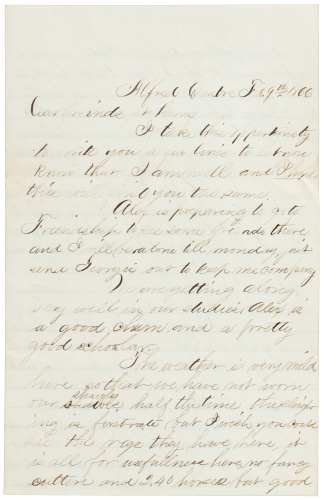 Alfred Centre F 9th 1866
Dear friends at home
I take this oppertunity
to write you a few lines to let you
know that I am well and I hope
this will find you the same.
Alex is preparing to go to
Friendship to see some friends there
and I will be alone till monday, just
send Georgie out to keep me company
We are getting along
very well in our studies, Alex is
a good chum and a pretty
good scholar.
The weather is very mild
here so that we have not worn
our shawles half the time the sleigh
ing is first rate but I wish you could
see the rigs they have here, it
is all for usefullness here, no fancy
cutters and 2.40 horses but good